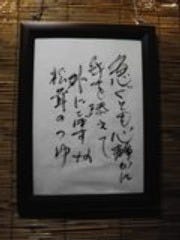 急ぐとも心静かに
手を添えて
外にこぼすな
松茸のつゆ